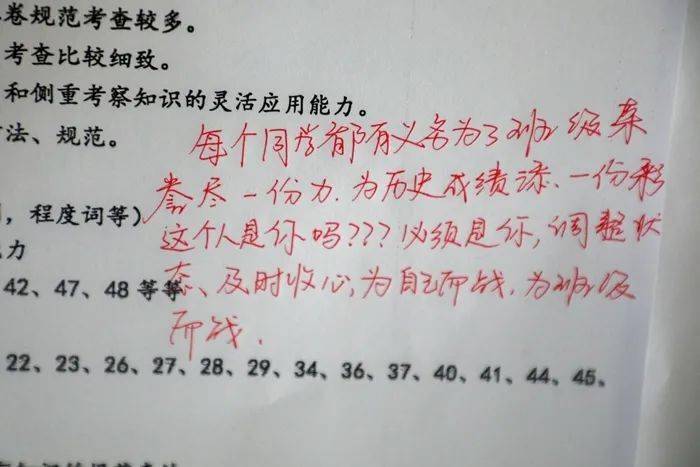 卷规范考查较多。
考查比较细致。
和侧重考察知识的灵活应用能力。
法、规范。
每个同学都有义务为了班级荣
誉尽一份力.为历史成绩添.一份彩
，程度词等)
这个人是你吗???必须是你,调整状
力
42、47、48 等等
态、及时收心,为自己而战.为班级
而战.
22、23、26、27、28、29、34、36、37、40、41、44、45、